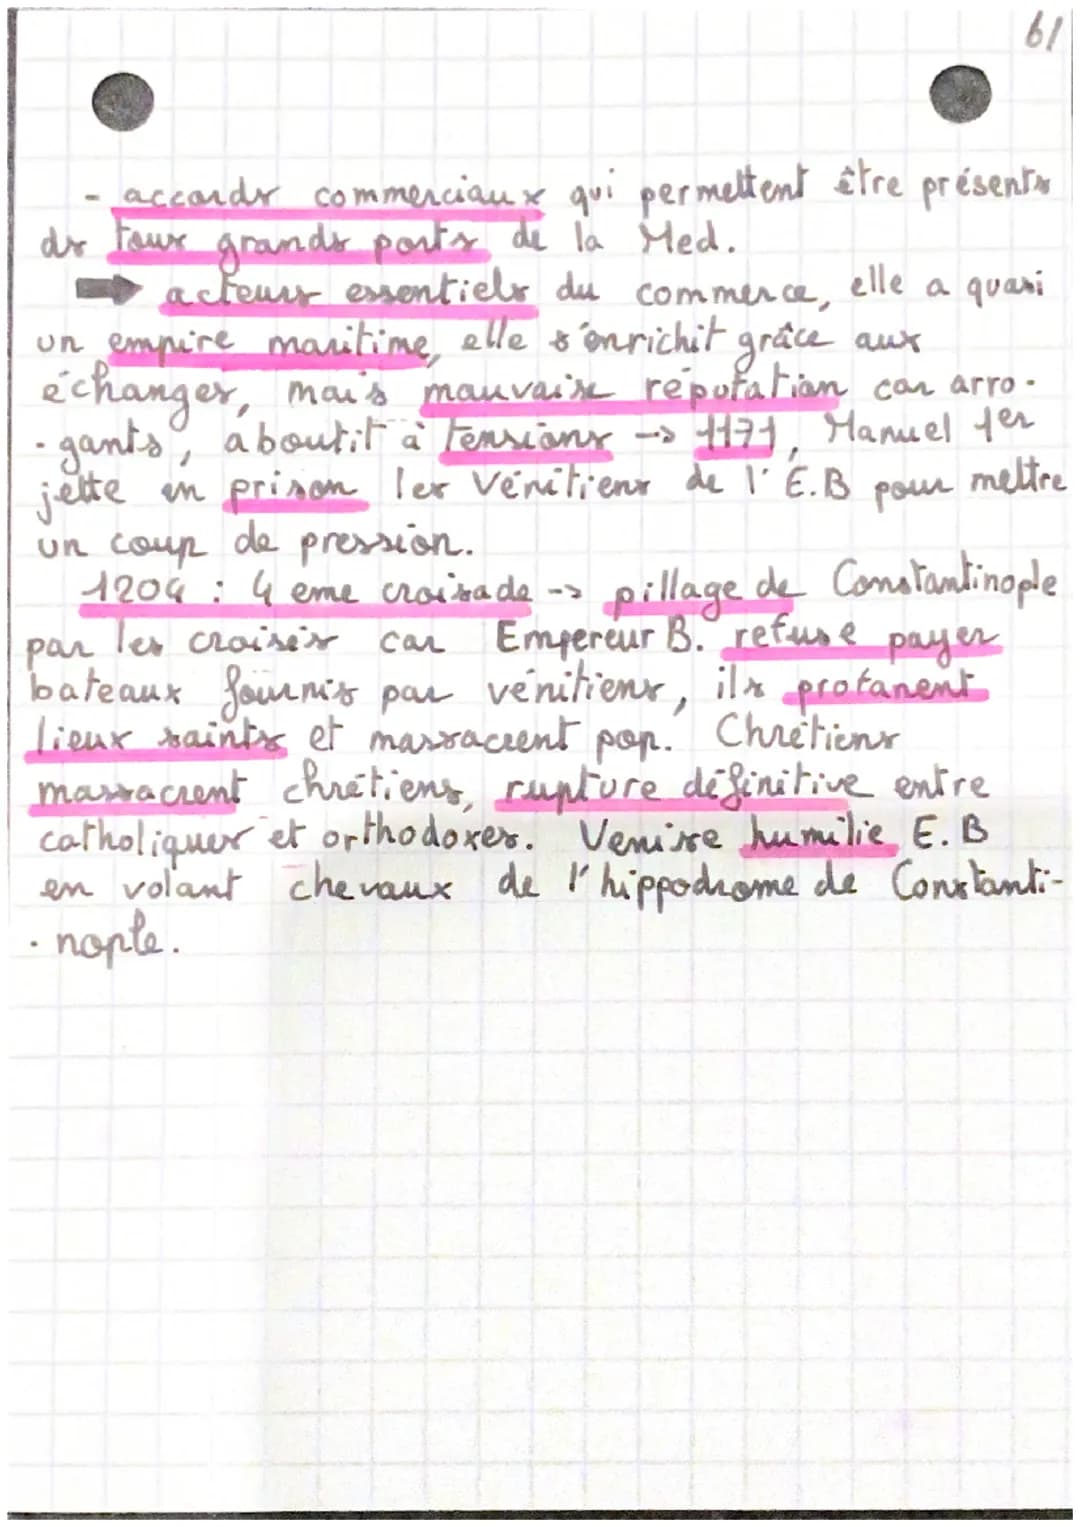 6/
- accords commerciaux qui permettent être présents
ds tous grands ports de la Med.
➡ acteurs essentiels du commerce, elle a quasi
un empire maritime, elle s'enrichit grâce aux
échanges, mais mauvaise réputation car arro-
-gants, aboutit à tensions -> 1171, Manuel 1er
jette en prison les Vénitiens de l'E.B pour mettre
un coup de pression.
1204 : 4 eme croisade -> pillage de Constantinople
par les croisés car Empereur B. refuse payer
bateaux fournis par vénitiens, ils profanent
lieux saints et massacrent pop. Chrétiens
massacrent chrétiens, rupture définitive entre
catholiques et orthodoxes. Venise humilie E.B
en volant chevaux de l'hippodrome de Constanti-
-nople.